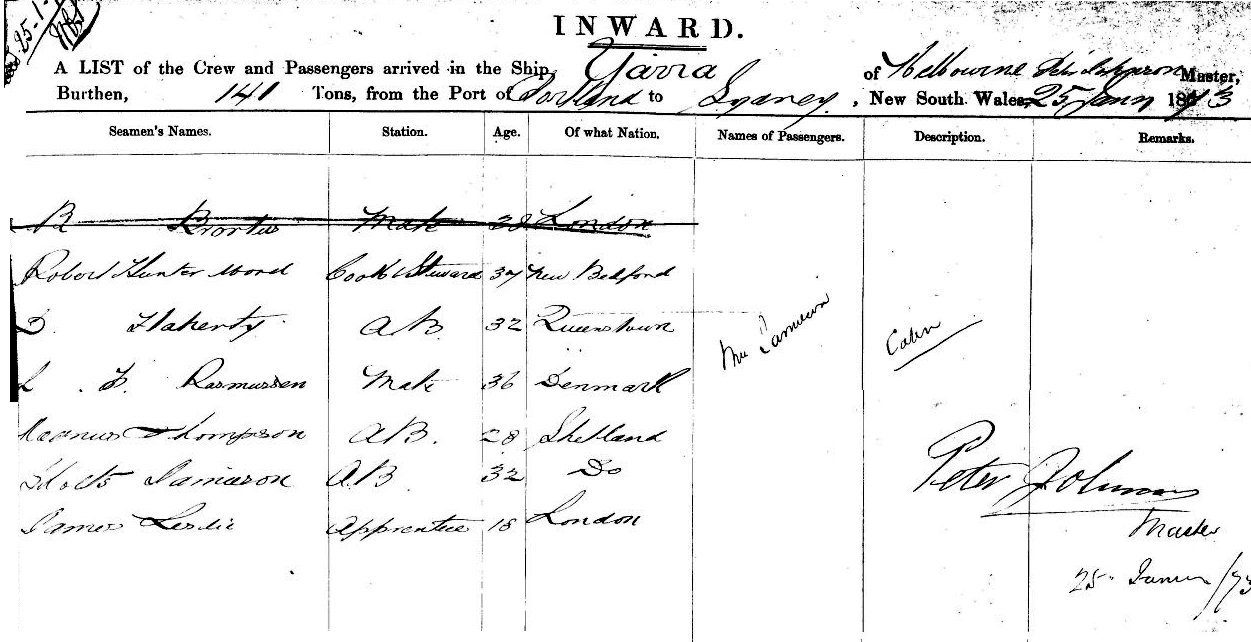 25-1-
INWARD.
A LIST of the Crew and Passengers arrived in the Ship, Yarra of Melbourne Master,
Burthen, 141 Tons, from the Port of Portland to Sydney, New South Wales, 25 Jany 1873
Seamen's Names. Station. Age. Of what Nation. Names of Passengers. Description. Remarks.
R Mate 38 London
Robert Hunter Cook & Steward 37 New Bedford
D. Flaherty AB 32 Queenstown
Mr Cabin
L. F. Rasmussen Mate 36 Denmark
Magnus Thompson AB. 28 Shetland
Jamieson AB 32 Do
James Leslie Apprentice 18 London
Peter Johnson
Master
25 /73